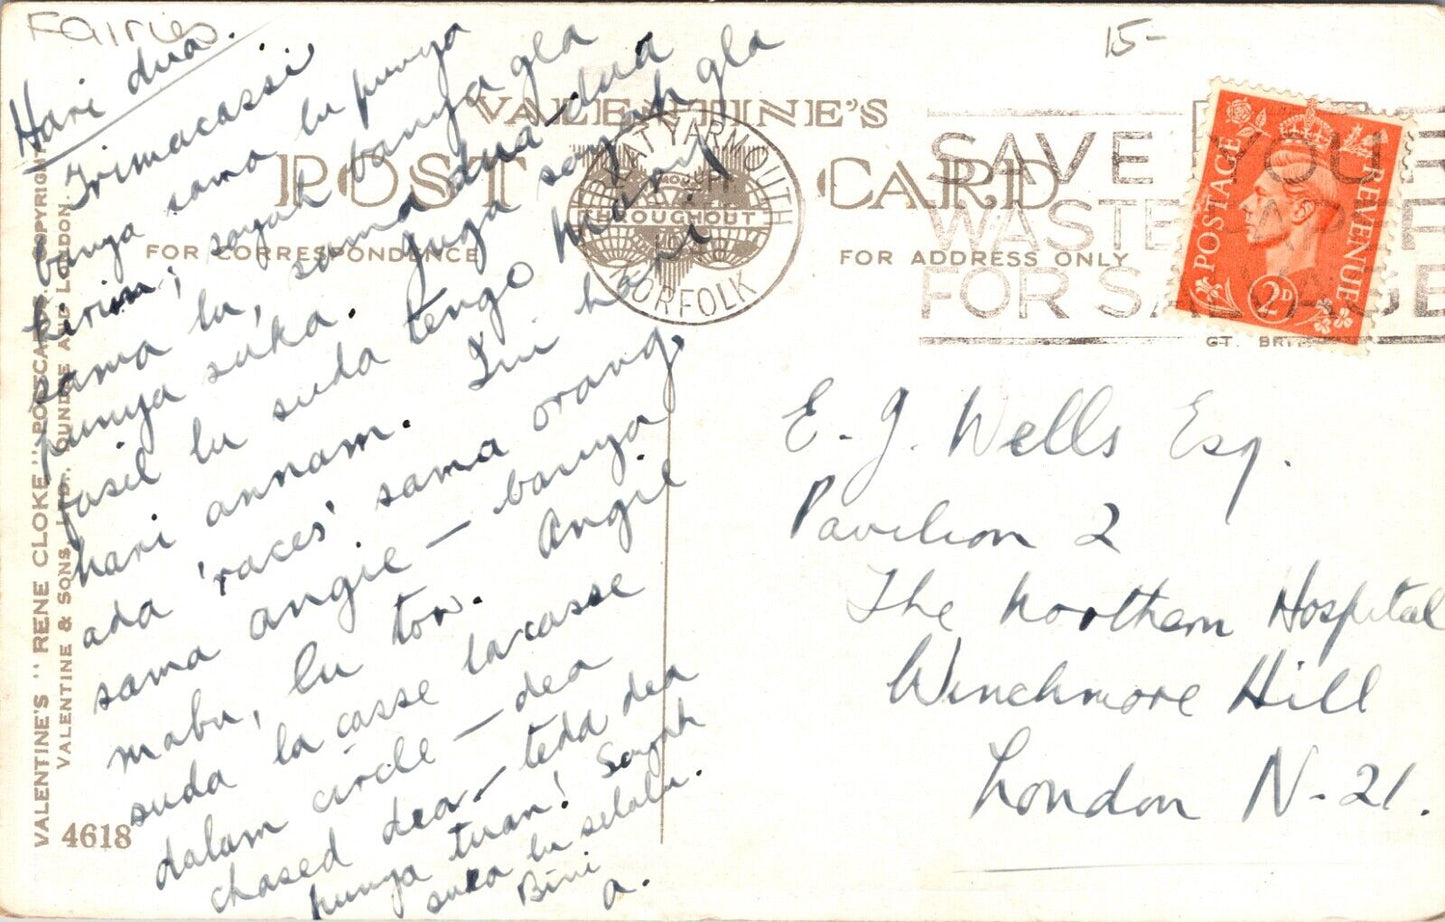 Fairies
15-
Hari dua.
Trimacassi
banya sama lu punya
kirim; sayah banya gla
sama lu, sama dua-dua
punya suka. Juga sayah gla
fasil lu suda tengo
hari annam. Ini hari
ada 'races' sama orang,
sama angie - banya
mabu, lu tow. Angie
suda la casse larcasse
dalam circle - dea
chased dea - tedd dea
punya tuan! Sayah
suka lu selalu.
Bini
a.
VALENTINE'S
POST CARD
FOR CORRESPONDENCE
FOR ADDRESS ONLY
GREAT YARMOUTH
NORFOLK
THROUGHOUT
SAVE YOUR
WASTE PAPER
FOR SALVAGE
POSTAGE REVENUE
2D
GT. BRITAIN
E. J. Wells Esq.
Pavilion 2
The Northern Hospital
Winchmore Hill
London N-21.
VALENTINE'S "RENE CLOKE" POSTCARD COPYRIGHT
VALENTINE & SONS, LTD., DUNDEE AND LONDON.
4618